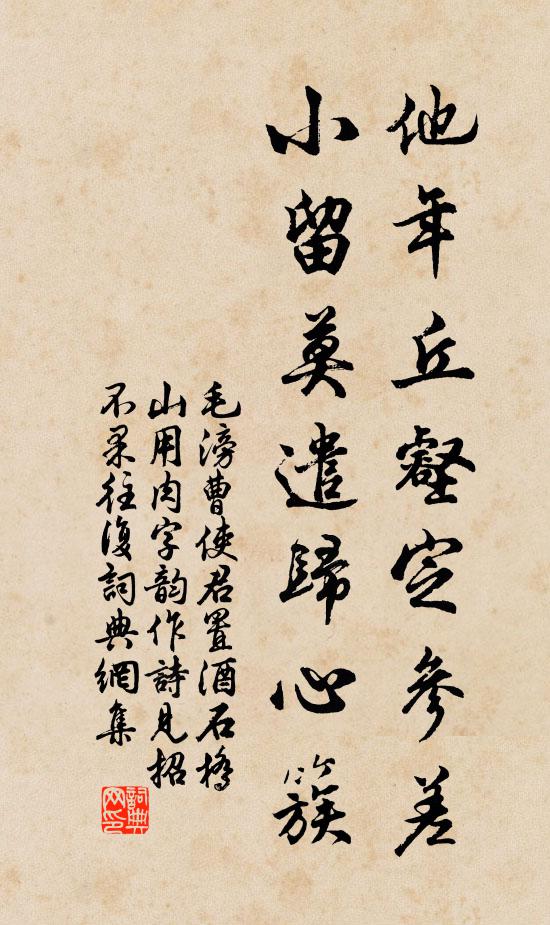 他年丘壑定參差
小留莫遣歸心簇
毛滂曹使君置酒石橋
山用肉字韵作詩見招
不果往復詞典網集
詞典網印